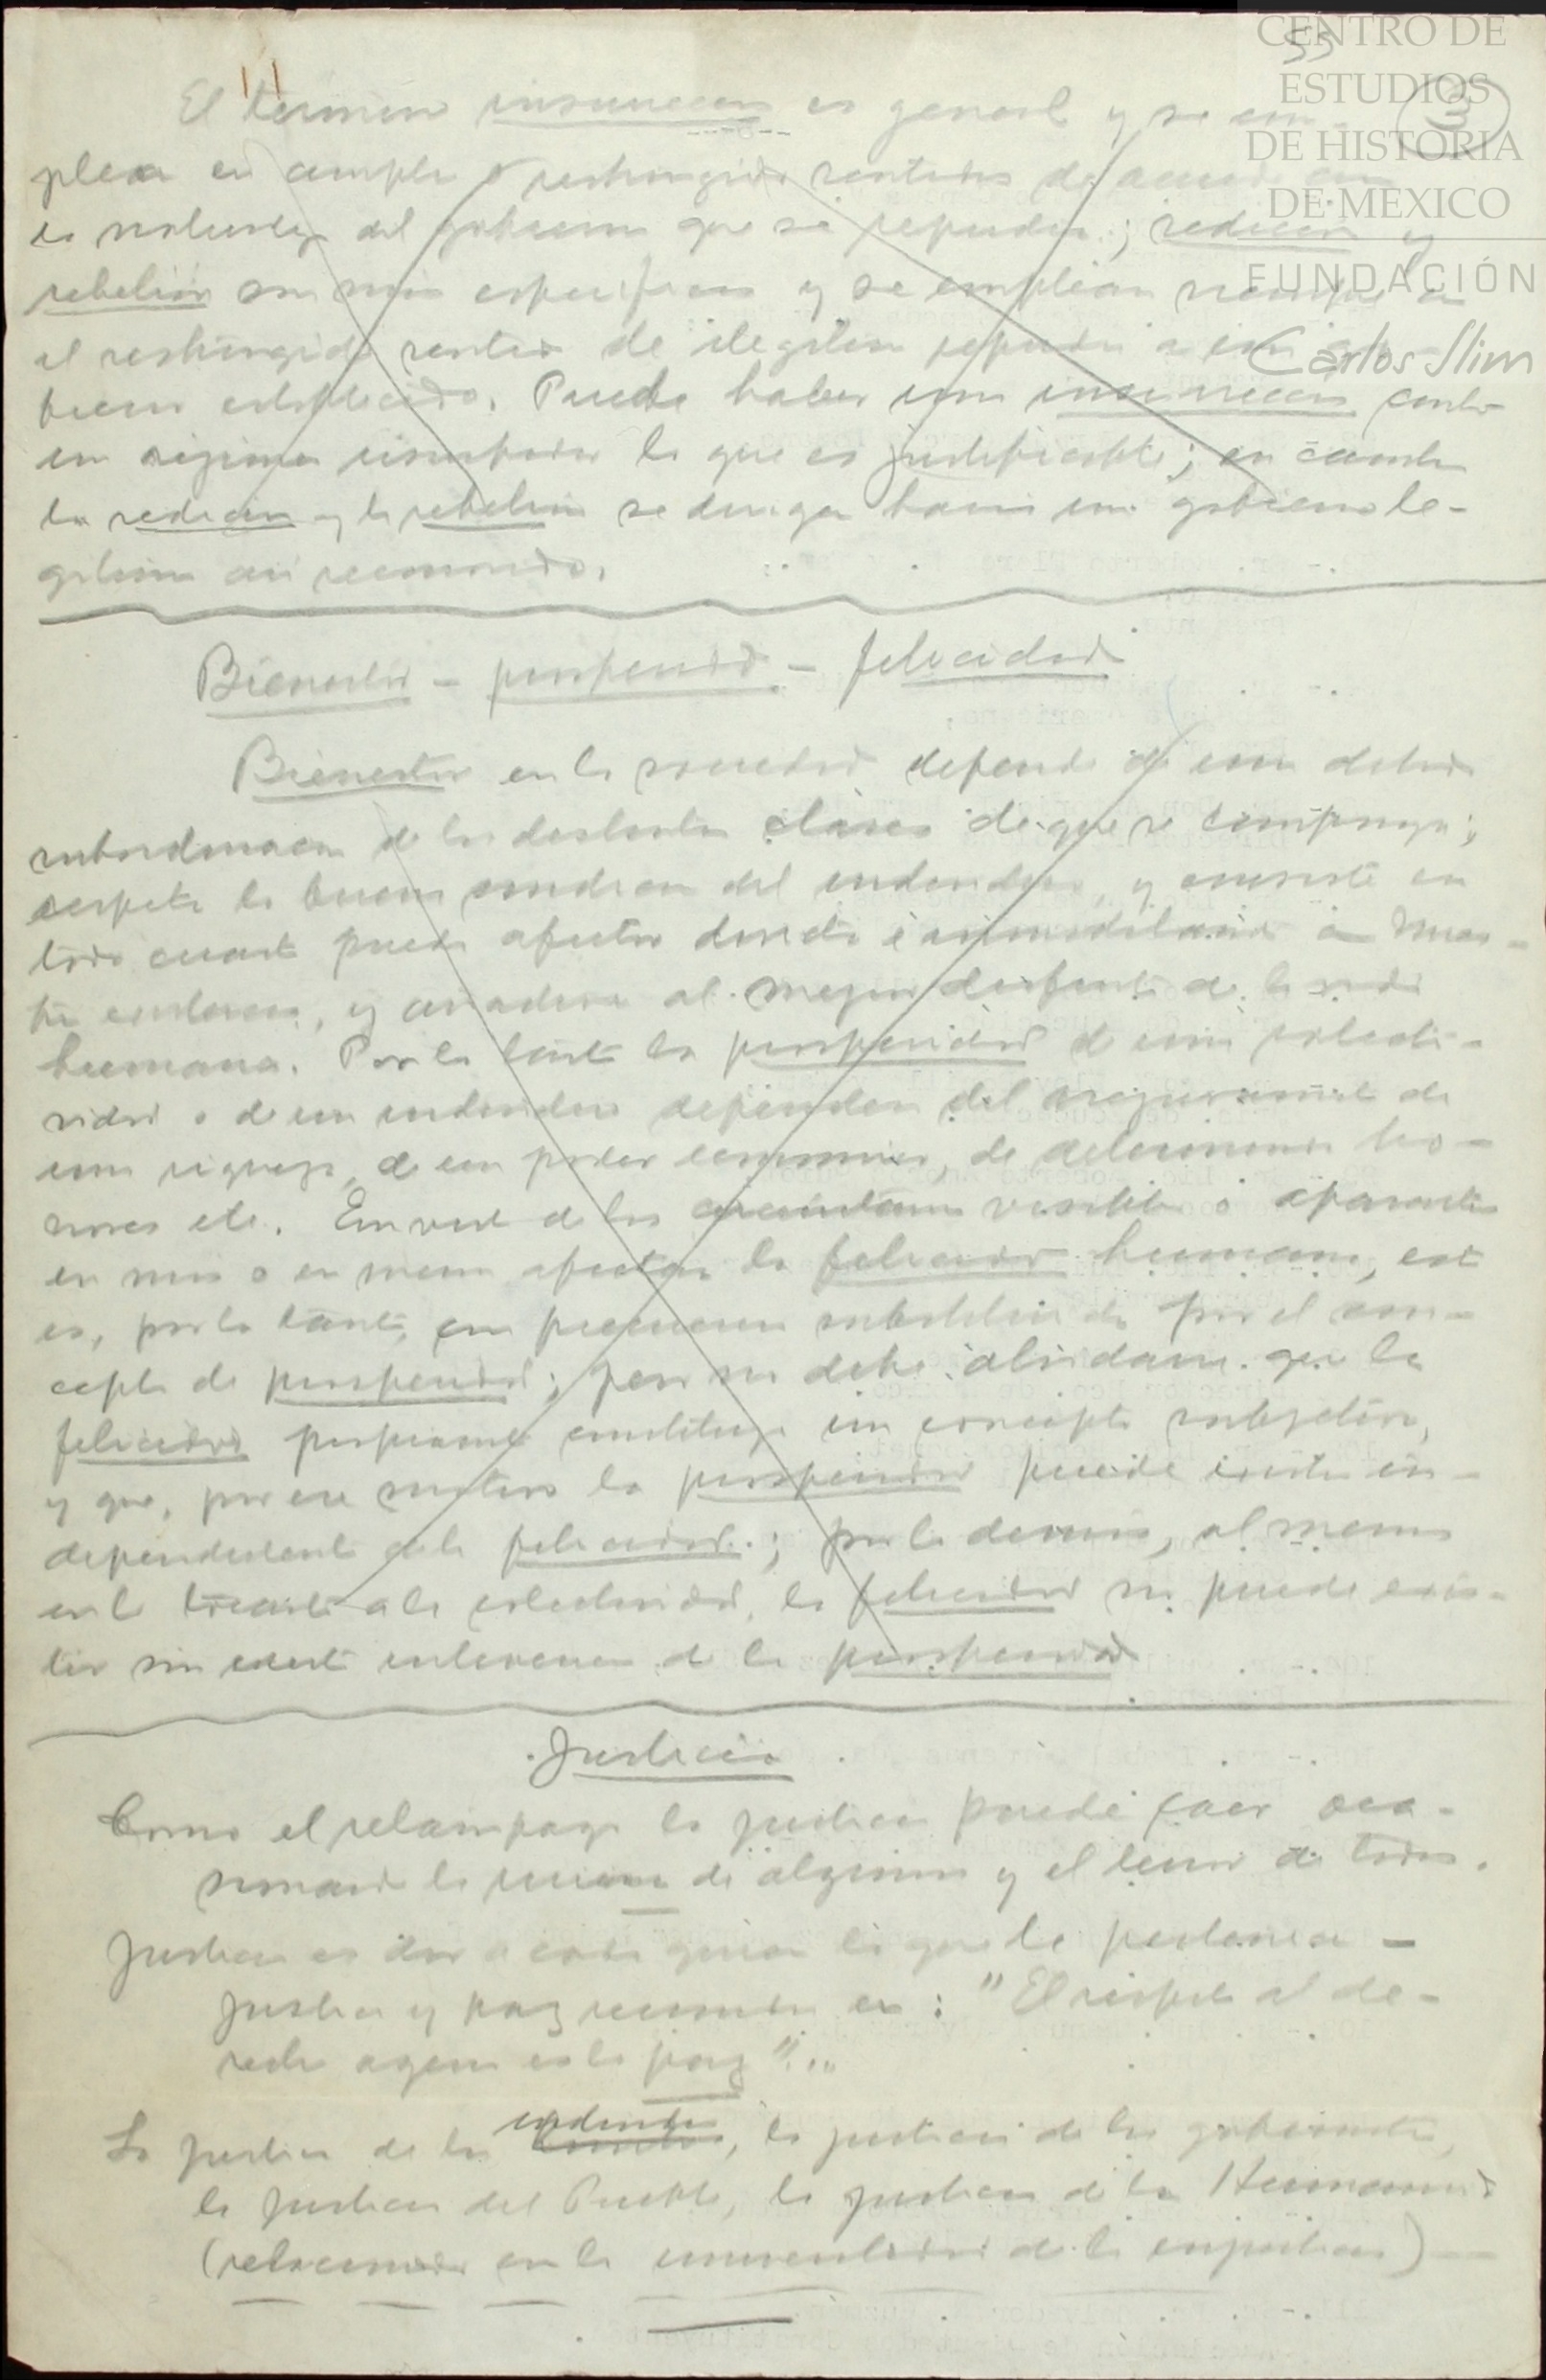 CENTRO DE
55
ESTUDIOS
3
DE HISTORIA
DE MEXICO
FUNDACIÓN
Carlos Slim
El termino insurreccion es general y se em-
plea en amplio o restringido sentido de acuerdo con
la naturaleza del gobierno que se repudia; sedicion y
rebelión son mas especificas y se emplean siempre en
el restringido sentido de ilegitimo repudio a un go-
bierno establecido. Puede haber una insurreccion contra
un regimen usurpador lo que es justificable; en cambio
la sedicion y la rebelion se dirigen hacia un gobierno le-
gitimo asi reconocido.
Bienestar - prosperidad - felicidad
Bienestar en la sociedad depende de una debida
subordinacion de las distintas clases de que se componga;
respecto la buena condicion del individuo, y consiste en
todo cuanto puede afectar directa é inmediatamente a nues-
tra existencia, y conduce al mejor disfrute de la vida
humana. Por lo tanto la prosperidad de una colecti-
vidad o de un individuo dependen del aseguramiento de
una riqueza, de un poder economico, de determinados ho-
nores etc. En virtud de las circunstancias visibles o aparentes
en mas o en menos afectan la felicidad humana, esta
es, por lo tanto, con frecuencia substituida por el con-
cepto de prosperidad; pero no debe olvidarse que la
felicidad propiamente constituye un concepto subjetivo,
y que, por ese motivo la prosperidad puede existir in-
dependiente de la felicidad; por lo demas, al menos
en lo tocante a la colectividad, la felicidad no puede exis-
tir sin cierta intervencion de la prosperidad
Justicia
Como el relampago la justicia puede caer oca-
sionando la ruina de algunos y el temor de todos.
Justicia es dar a cada quien lo que le pertenece -
Justicia y paz reunidas es: "El respeto al de-
recho ageno es la paz"...
La justicia de los individuos, la justicia de los gobernantes,
la justicia del Pueblo, la justicia de la Humanidad
(relacionada con la universalidad de la injusticia) —